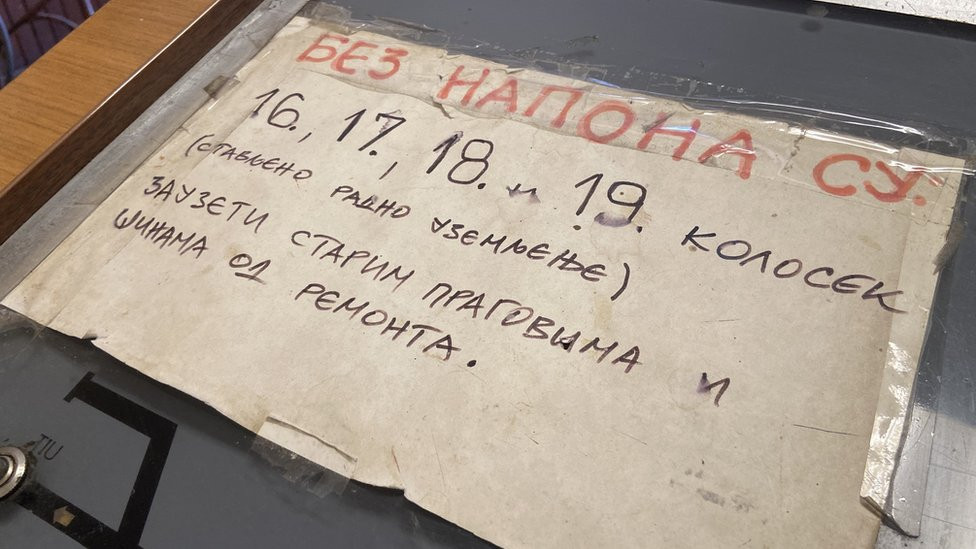 БЕЗ НАПОНА СУ:
16., 17., 18. и 19. КОЛОСЕК
(СТАВЉЕНО РАДНО УЗЕМЉЕЊЕ)
ЗАУЗЕТИ СТАРИМ ПРАГОВИМА И
ШИНАМА ОД РЕМОНТА.